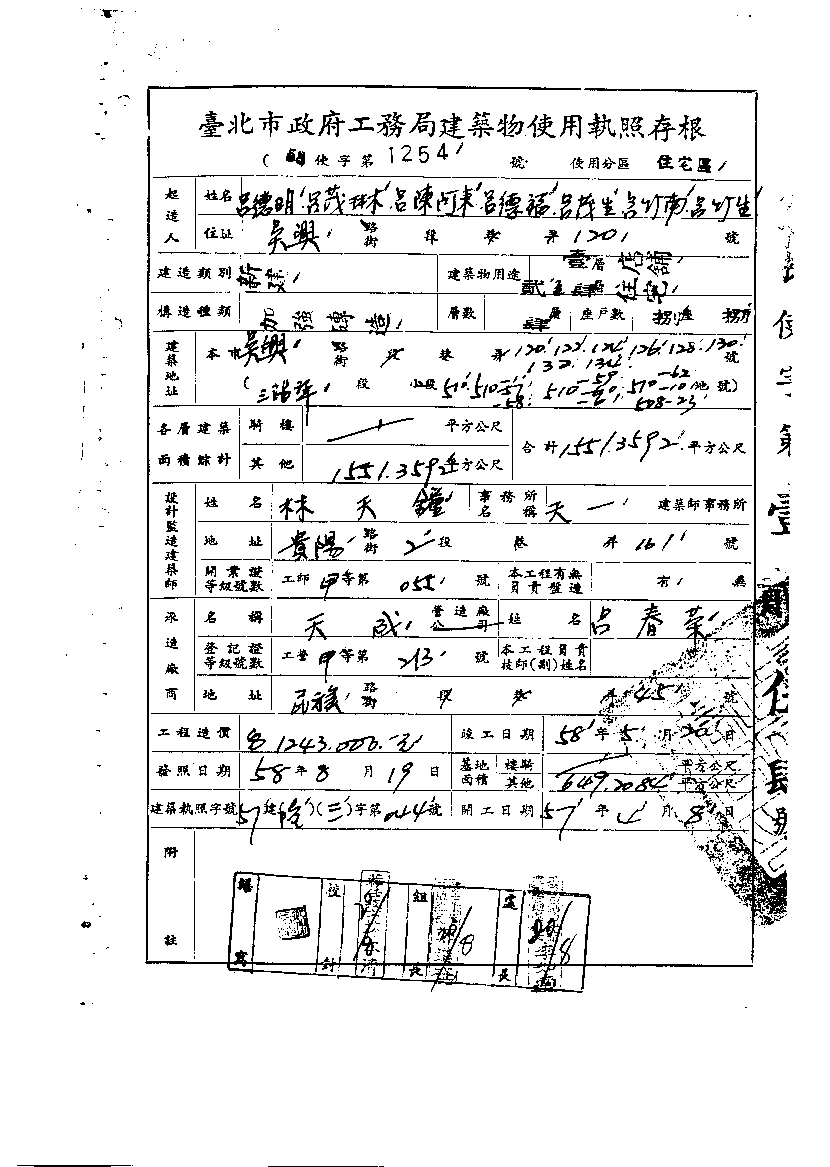 臺北市政府工務局建築物使用執照存根
( 使字第 1254 號 使用分區 住宅區
起造人 姓名 呂德明 呂茂琳 呂陳阿来 呂德福 呂茂生 呂竹南 呂竹生
住址 吳興 路街 段 巷 弄 120 號
建造類別 新建 建築物用途 壹層店舖 貳至肆層住宅
構造種類 加強磚造 層數 肆層 座戶數 捌座 捌戶
建築地址 本市 吳興 路街 段 巷 弄 120 122 124 126 128 130 號
132 134
( 三張犁 段 小段 510 510-57 510-59 510-62 地號)
-58 -60 510-10
508-23
各層建築面積綜計 騎樓 平方公尺 合計 1551.3592 平方公尺
其他 1551.3592 平方公尺
設計監造建築師 姓名 林天鐘 事務所名稱 天一 建築師事務所
地址 貴陽 路街 2 段 巷 弄 161 號
開業證等級號數 工師 甲 等第 055 號 本工程有無負責監造 有 無
承造廠商 名稱 天成 營造廠公司 姓名 呂春榮
登記證等級號數 工營 甲 等第 213 號 本工程負責技師(副)姓名
地址 民族 路街 段 巷 弄 45 號
工程造價 1243.000.元 竣工日期 58 年 5 月 20 日
發照日期 58 年 8 月 19 日 基地面積 樓騎 平方公尺
其他 649.2084 平方公尺
建築執照字號 57 建 ( ) (三) 字第 號 開工日期 57 年 月 8 日
附註
繕寫 校對 組長 室長
使字第壹